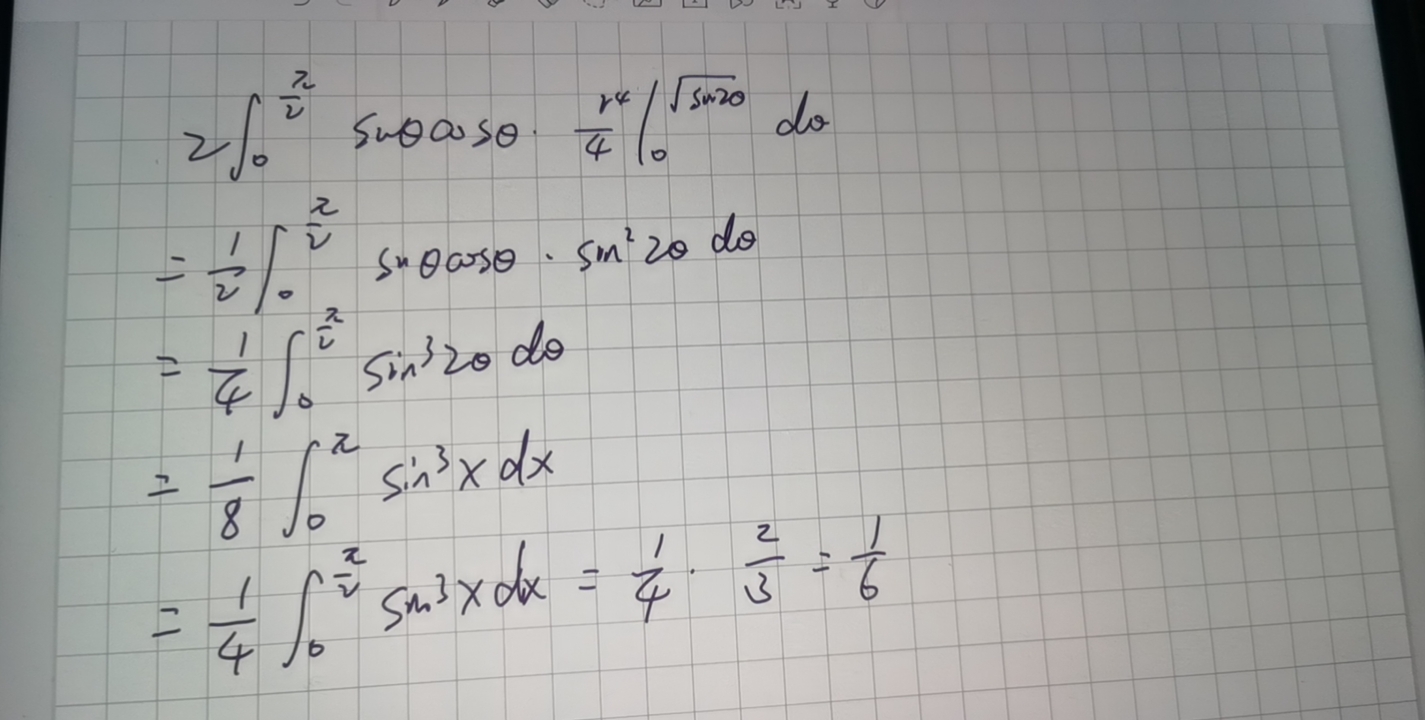 2∫₀^{π/2} sinθcosθ · r⁴/4 |₀^{√sin2θ} dθ
= 1/2 ∫₀^{π/2} sinθcosθ · sin²2θ dθ
= 1/4 ∫₀^{π/2} sin³2θ dθ
= 1/8 ∫₀^{π} sin³x dx
= 1/4 ∫₀^{π/2} sin³x dx = 1/4 · 2/3 = 1/6